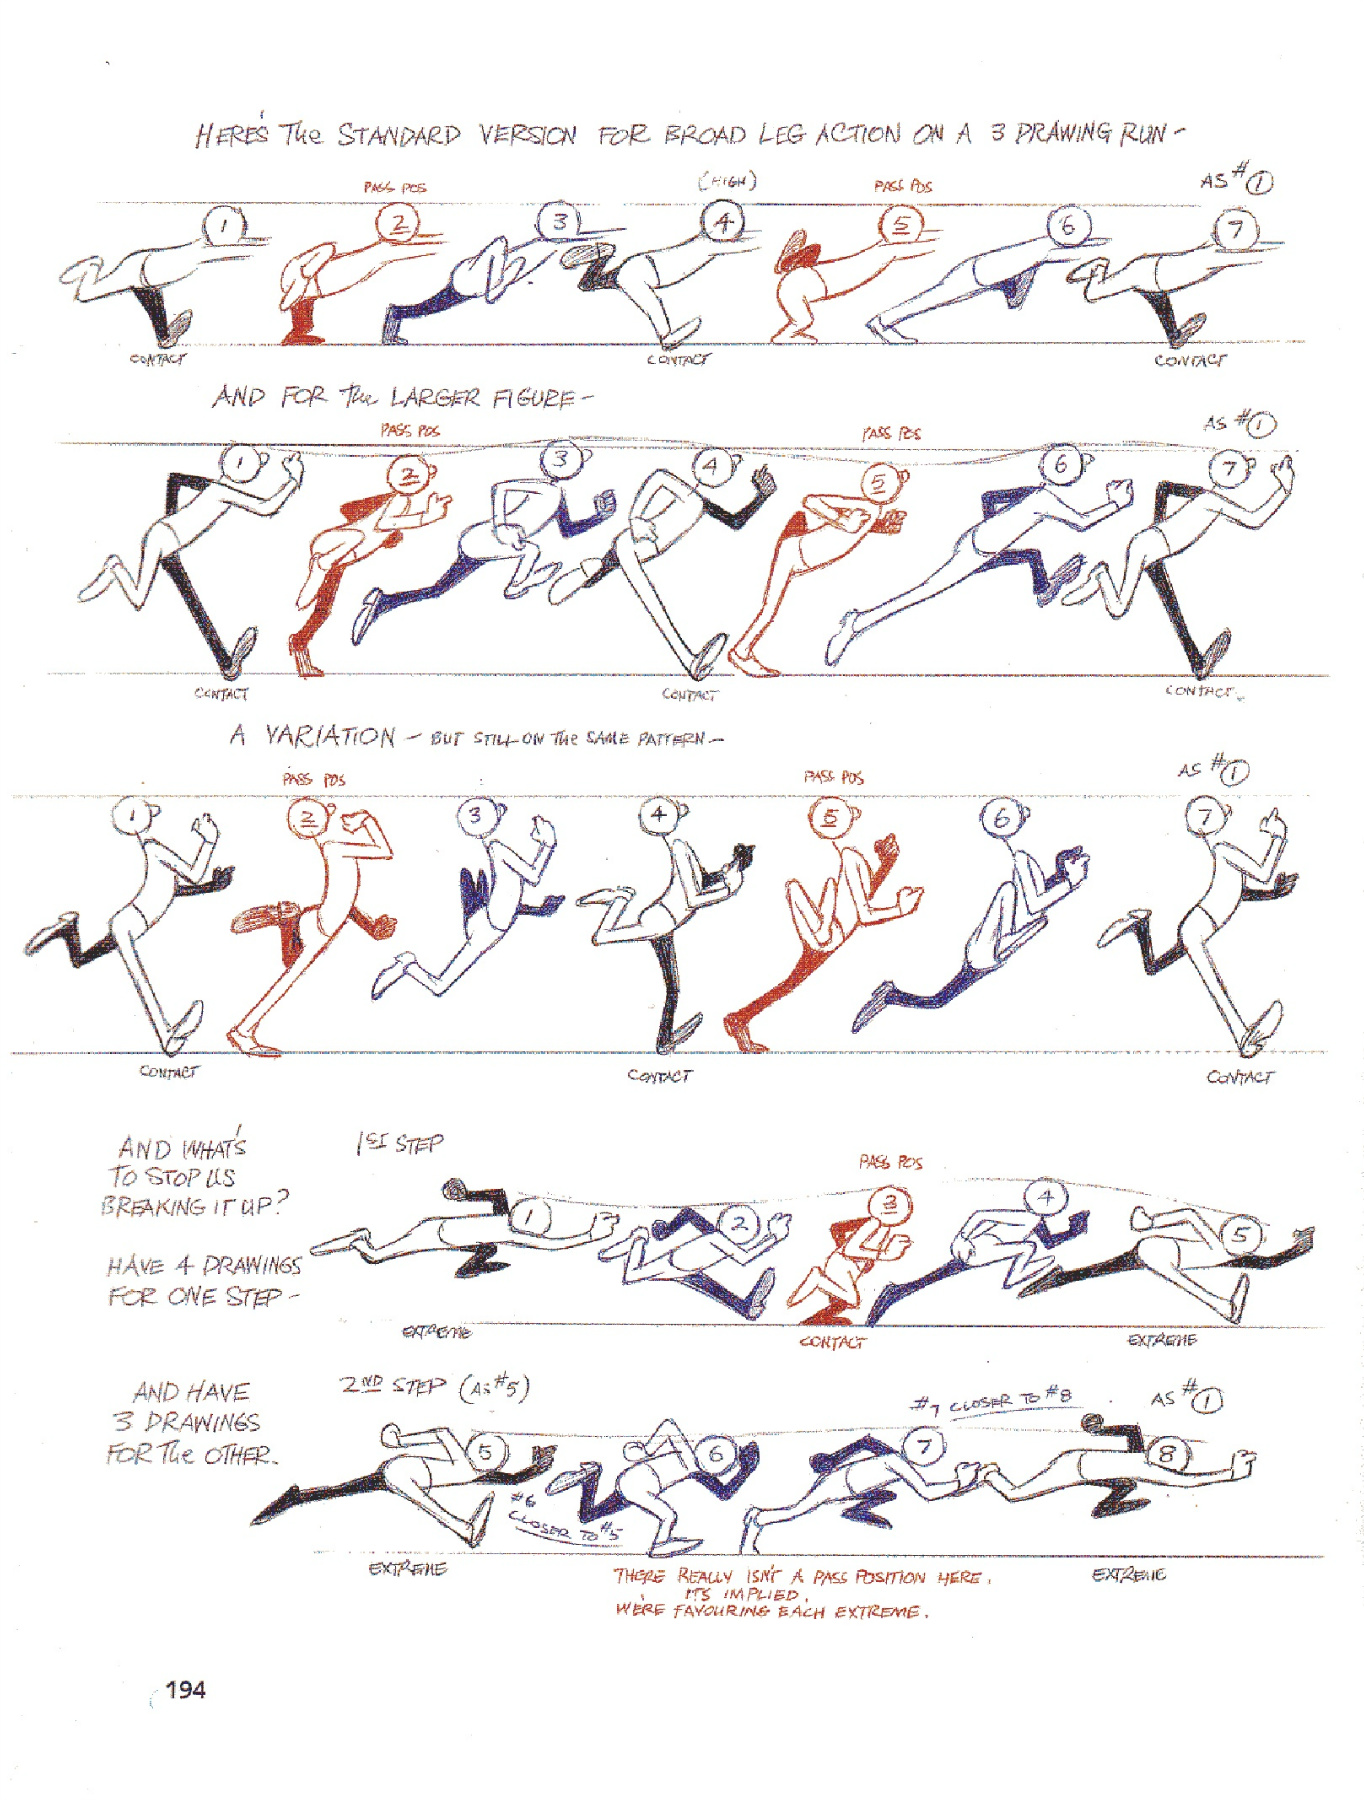 HERE'S The STANDARD VERSION FOR BROAD LEG ACTION ON A 3 DRAWING RUN -
PASS POS (HIGH) PASS POS AS #1
1 2 3 4 5 6 7
CONTACT CONTACT CONTACT
AND FOR The LARGER FIGURE -
PASS POS PASS POS AS #1
1 2 3 4 5 6 7
CONTACT CONTACT CONTACT.
A VARIATION - BUT STILL ON The SAME PATTERN -
PASS POS PASS POS AS #1
1 2 3 4 5 6 7
CONTACT CONTACT CONTACT
AND WHAT'S
TO STOP US
BREAKING IT UP?
HAVE 4 DRAWINGS
FOR ONE STEP -
1ST STEP
PASS POS
1 2 3 4 5
EXTREME CONTACT EXTREME
AND HAVE
3 DRAWINGS
FOR The OTHER.
2ND STEP (AS #5)
#7 CLOSER TO #8
AS #1
5 6 7 8
#6
CLOSER TO #5
EXTREME EXTREME
THERE REALLY ISN'T A PASS POSITION HERE.
ITS IMPLIED.
WE'RE FAVOURING EACH EXTREME.
194